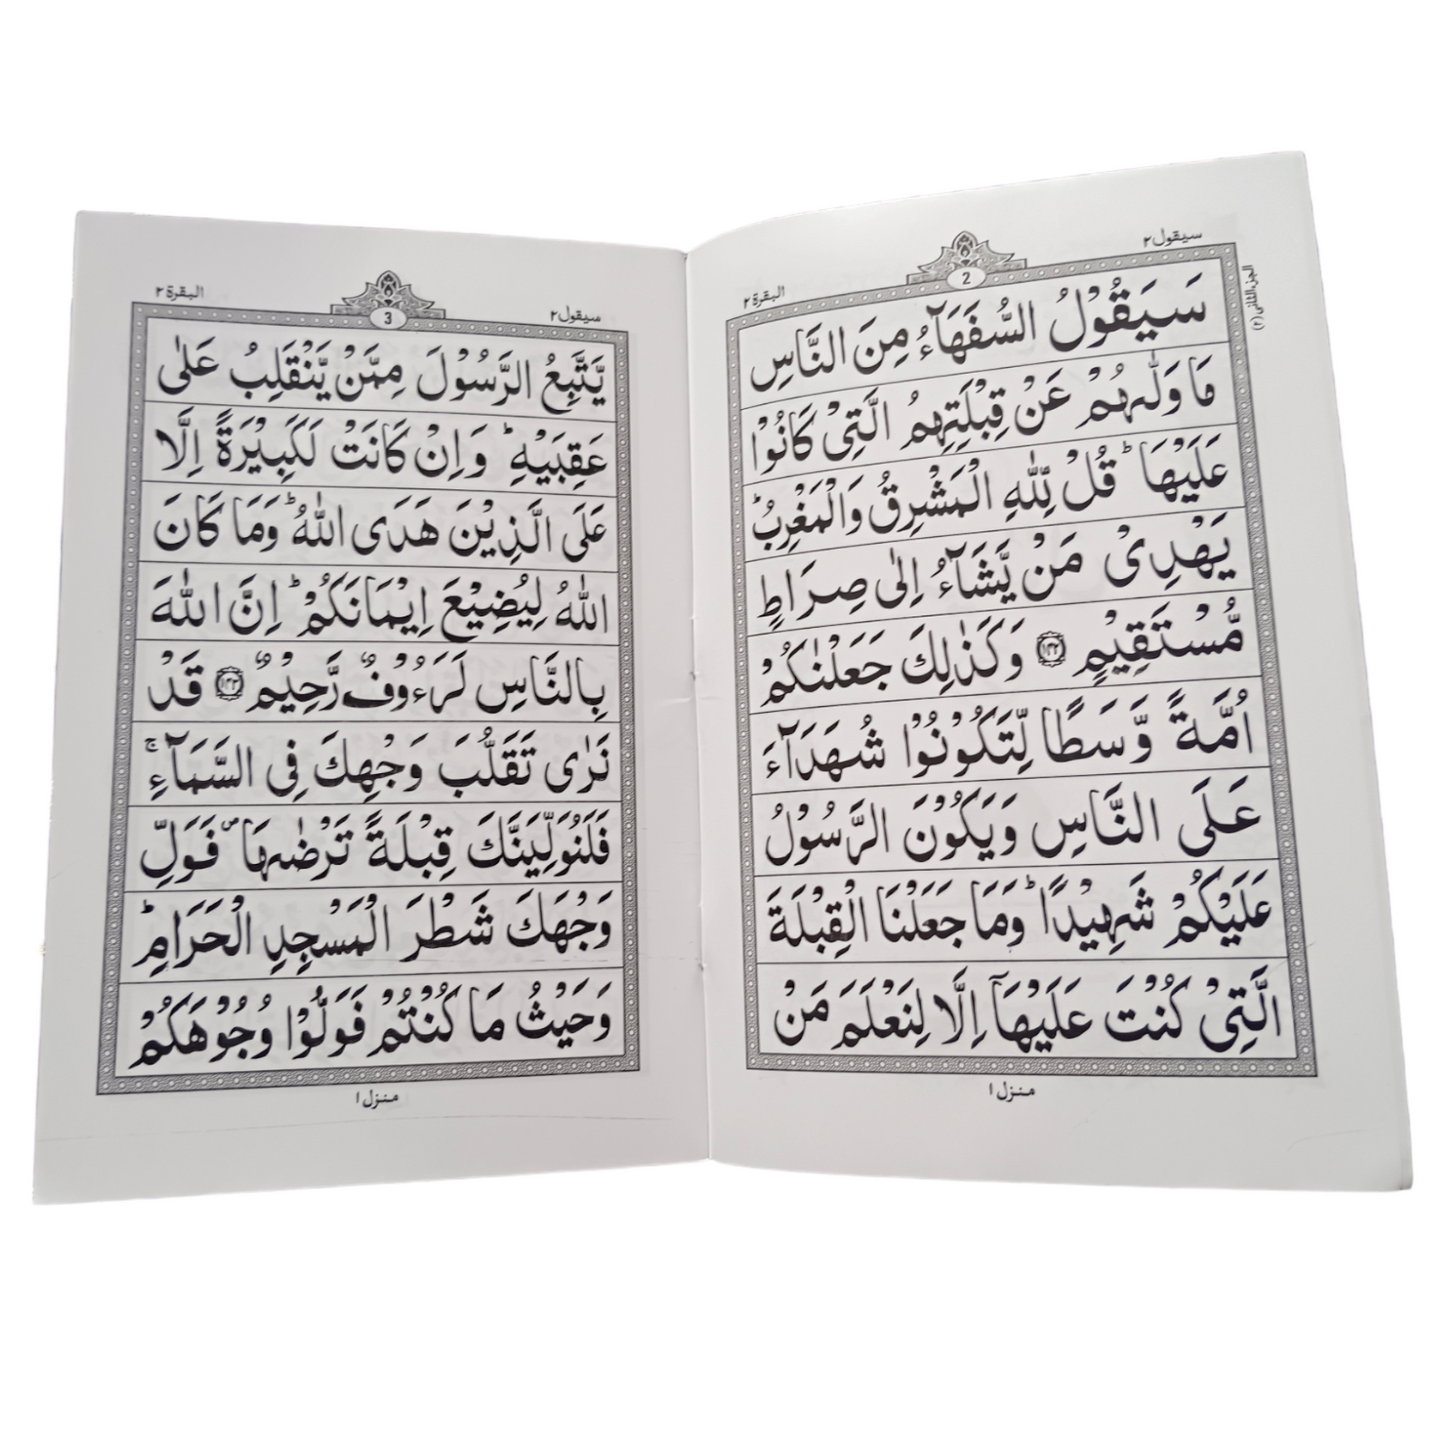 سيقول ٢
2
البقرة ٢
الجزء الثانی (٢)
سَيَقُوْلُ السُّفَهَآءُ مِنَ النَّاسِ
مَا وَلّٰىهُمْ عَنْ قِبْلَتِهِمُ الَّتِىْ كَانُوْا
عَلَيْهَا ؕ قُلْ لِّلّٰهِ الْمَشْرِقُ وَالْمَغْرِبُ ؕ
يَهْدِىْ مَنْ يَّشَآءُ اِلٰى صِرَاطٍ
مُّسْتَقِيْمٍ ﴿١٤٢﴾ وَكَذٰلِكَ جَعَلْنٰكُمْ
اُمَّةً وَّسَطًا لِّتَكُوْنُوْا شُهَدَآءَ
عَلَى النَّاسِ وَيَكُوْنَ الرَّسُوْلُ
عَلَيْكُمْ شَهِيْدًا ؕ وَمَا جَعَلْنَا الْقِبْلَةَ
الَّتِىْ كُنْتَ عَلَيْهَآ اِلَّا لِنَعْلَمَ مَنْ
منزل ١
سيقول ٢
3
البقرة ٢
يَّتَّبِعُ الرَّسُوْلَ مِمَّنْ يَّنْقَلِبُ عَلٰى
عَقِبَيْهِ ؕ وَاِنْ كَانَتْ لَكَبِيْرَةً اِلَّا
عَلَى الَّذِيْنَ هَدَى اللّٰهُ ؕ وَمَا كَانَ
اللّٰهُ لِيُضِيْعَ اِيْمَانَكُمْ ؕ اِنَّ اللّٰهَ
بِالنَّاسِ لَرَءُوْفٌ رَّحِيْمٌ ﴿١٤٣﴾ قَدْ
نَرٰى تَقَلُّبَ وَجْهِكَ فِى السَّمَآءِ ۚ
فَلَنُوَلِّيَنَّكَ قِبْلَةً تَرْضٰىهَا ۪ فَوَلِّ
وَجْهَكَ شَطْرَ الْمَسْجِدِ الْحَرَامِ ؕ
وَحَيْثُ مَا كُنْتُمْ فَوَلُّوْا وُجُوْهَكُمْ
منزل ١